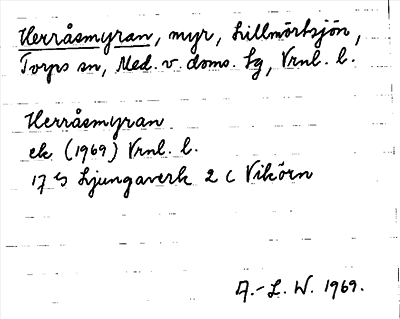 Herråsmyran, myr, Lillmörtsjön,
Torps sn, Med. v. doms. tg, Vrnl. l.
Herråsmyran
ek (1969) Vrnl. l.
17 G Ljungaverk 2 c Vikörn
A.-L. W. 1969.